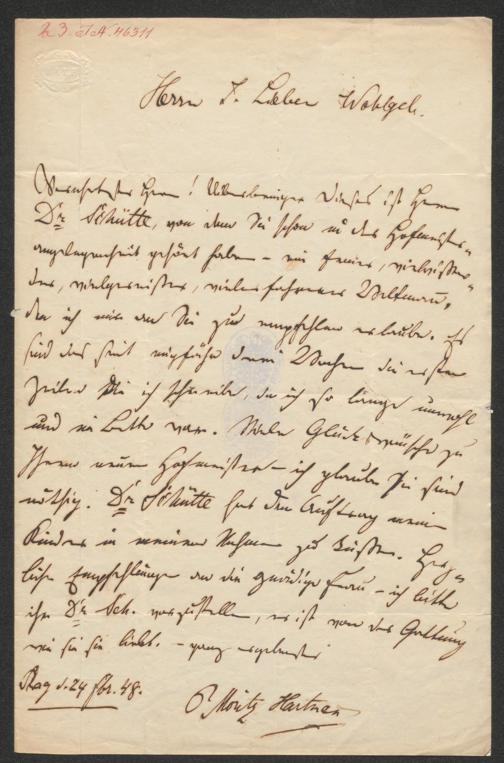 Z 3. J.N. 46311
Herrn J. Lieben Wohlgeb.
Verehrtester Herr! Ueberbringer dieses ist Herr
Dr Schütte, von dem Sie schon in der Hofmeister-
angelegenheit gehört haben – ein feiner, vielwissen-
der, vielgereister, vielerfahrener Weltmann,
den ich mir an Sie zu empfehlen erlaube. Es
sind das seit ungefähr drei Wochen die ersten
Zeilen die ich schreibe, da ich so lange unwohl
und im Bette war. Viele Glückwünsche zu
Ihrem neuen Hofmeister – ich glaube sie sind
nöthig. Dr Schütte hat den Auftrag meine
Kinder in meinem Nahmen zu küssen. Herz-
liche Empfehlungen an die gnädige Frau – ich bitte
ihr Dr Sch. vorzustellen, er ist von der Gattung
wie sie sie liebt. – ganz ergebenster
Prag d. 24 Fbr. 48.
Moritz Hartmann